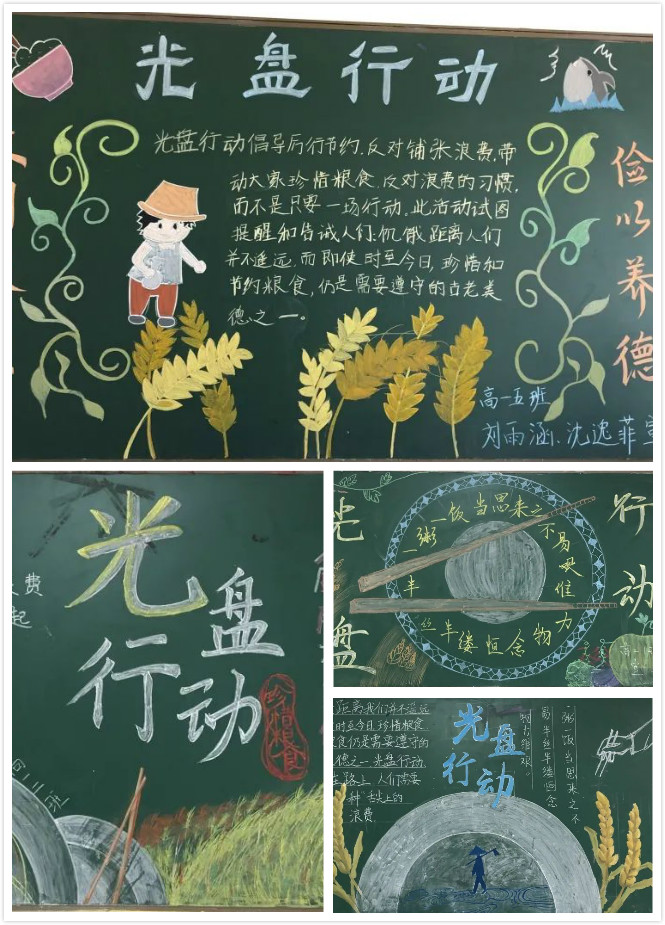 光盘行动
光盘行动倡导厉行节约.反对铺张浪费,带
动大家珍惜粮食.反对浪费的习惯,
而不是只要一场行动.此活动试图
提醒和告诫人们:饥饿距离人们
并不遥远.而即使时至今日,珍惜和
节约粮食,仍是需要遵守的古老美
德之一。
俭以养德
高一五班
刘雨涵.沈逸菲
光盘
行动
珍惜粮食
费
起
光盘
行动
一粥一饭当思来之不易
半丝半缕恒念物力维
距离我们并不遥远
时至今日珍惜粮食
食仍是需要遵守的
德之一光盘行动
路上人们需要
种舌尖上的
浪费
光盘
行动
物力维艰
易半丝半缕恒念
一粥一饭当思来之不